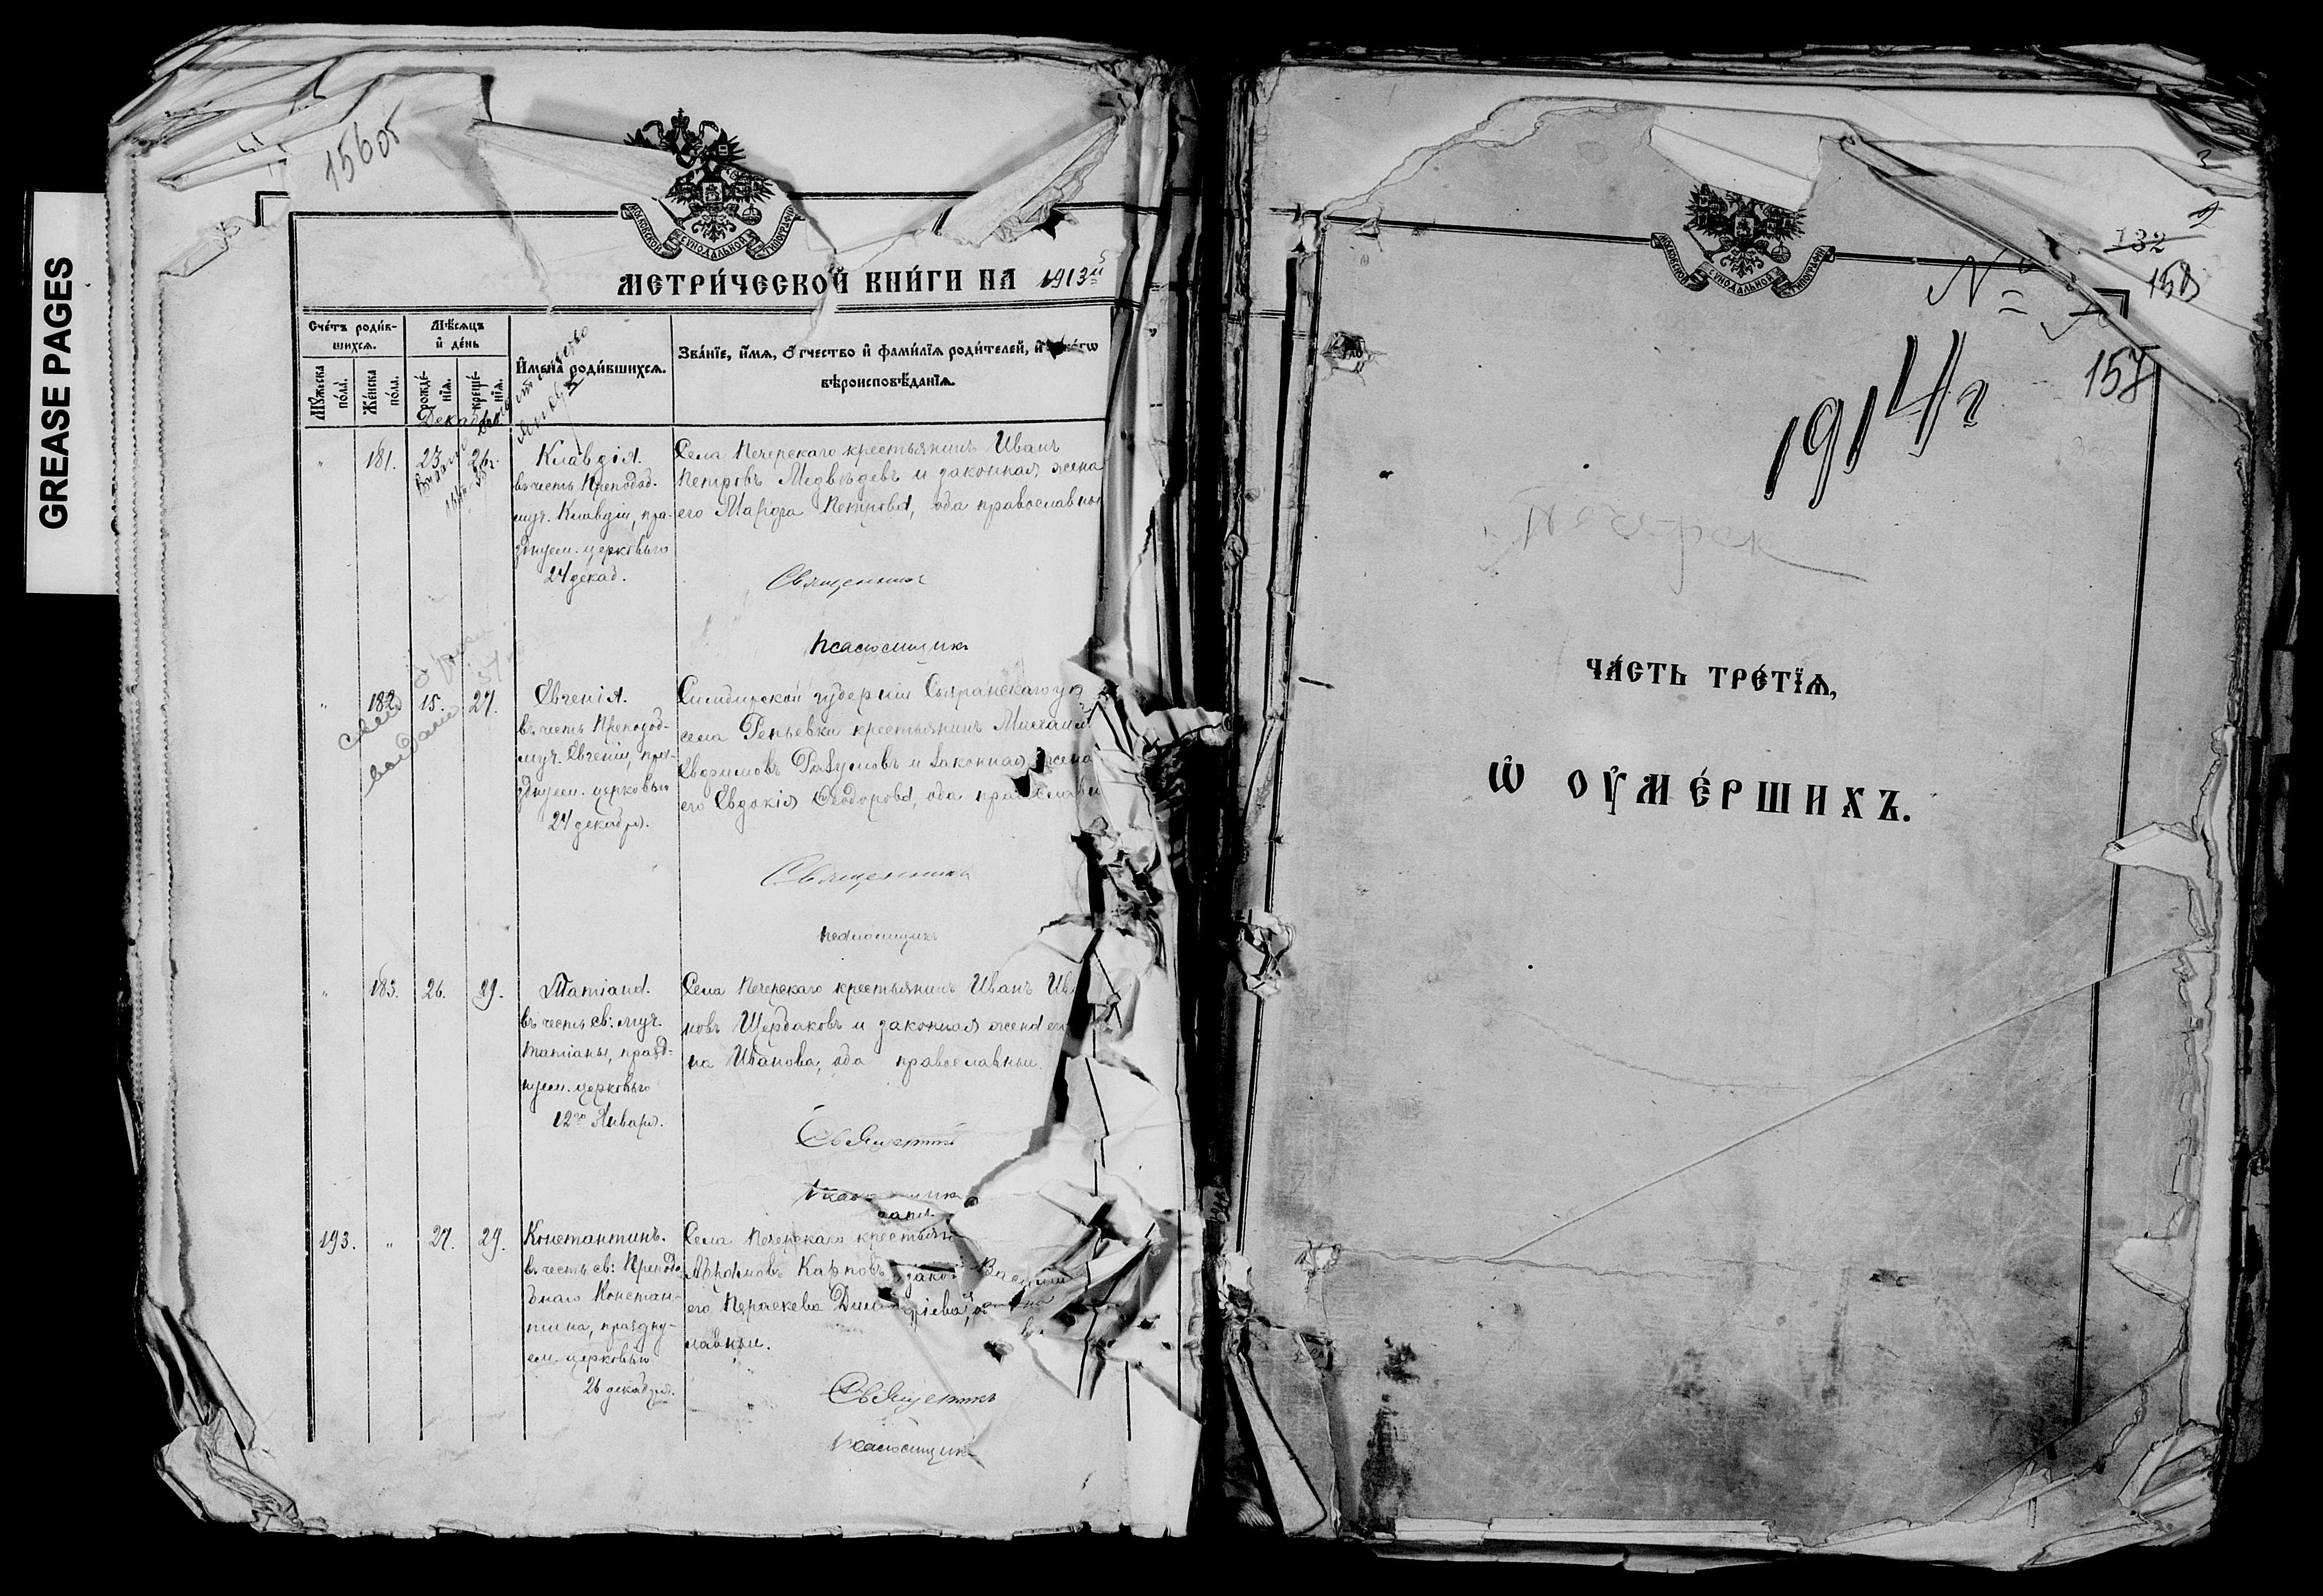 GREASE PAGES
156 об
МОСКОВСКОЙ СѴНОДАЛЬНОЙ ТИПОГРАФІИ
МЕТРИ́ЧЕСКОЙ КНИ́ГИ НА 1913
Сче́тъ роди́в-
шихсѧ.
Мѣ́сѧцъ
и҆ де́нь
И҆мена̀ роди́вшихсѧ.
Зва́нїе, и҆́мѧ, ѻ҆́тчество и҆ фами́лїѧ роди́телей, и҆
вѣроисповѣ́данїѧ.
Мꙋ́жеска
по́ла.
Же́нска
по́ла.
рожде́-
нїѧ.
креще́-
нїѧ.
Декабрь
" 181. 23 26.
Клавдія.
въ честь Преподоб.
муч. Клавдіи, пра-
зднуем. церковью
24 декаб.
Села Печерскаго крестьянинъ Иванъ
Петровъ Медвѣдевъ и законная жена
его Марфа Петрова, оба православны
Священникъ
Псаломщикъ
" 182. 15. 27.
Евгенія.
въ честь Преподоб-
муч. Евгеніи, пра-
зднуем. церковью
24 декабря.
Симбирской губерніи Сызранскаго у
села Репьевки крестьянинъ Михаилъ
Ефимовъ Разумовъ и законная жена
его Евдокія Ѳеодорова, оба православны
Священникъ
Псаломщикъ
" 183. 26. 29.
Татіана.
въ честь св: муч.
Татіаны, празд-
нуем. церковью
12го Января.
Села Печерскаго крестьянинъ Иванъ Ив
новъ Щербаковъ и законная жена его
на Иванова, оба православныи.
Священникъ
Псаломщикъ
193. " 27. 29.
Константинъ.
въ честь св: Преподо
бнаго Констан-
тина, праздну-
ем. церковью
26 декабря.
Села Печерскаго крестьян
Абрамовъ Карповъ и закон
его Дими рiева,
славныи.
Священникъ
Псаломщикъ
МОСКОВСКОЙ СѴНОДАЛЬНОЙ ТИПОГРАФІИ
2
132
158
№
157
1914 г
ЧА́СТЬ ТРЕ́ТЇѦ,
Ѡ҆ ОУ҆МЕ́РШИХЪ.